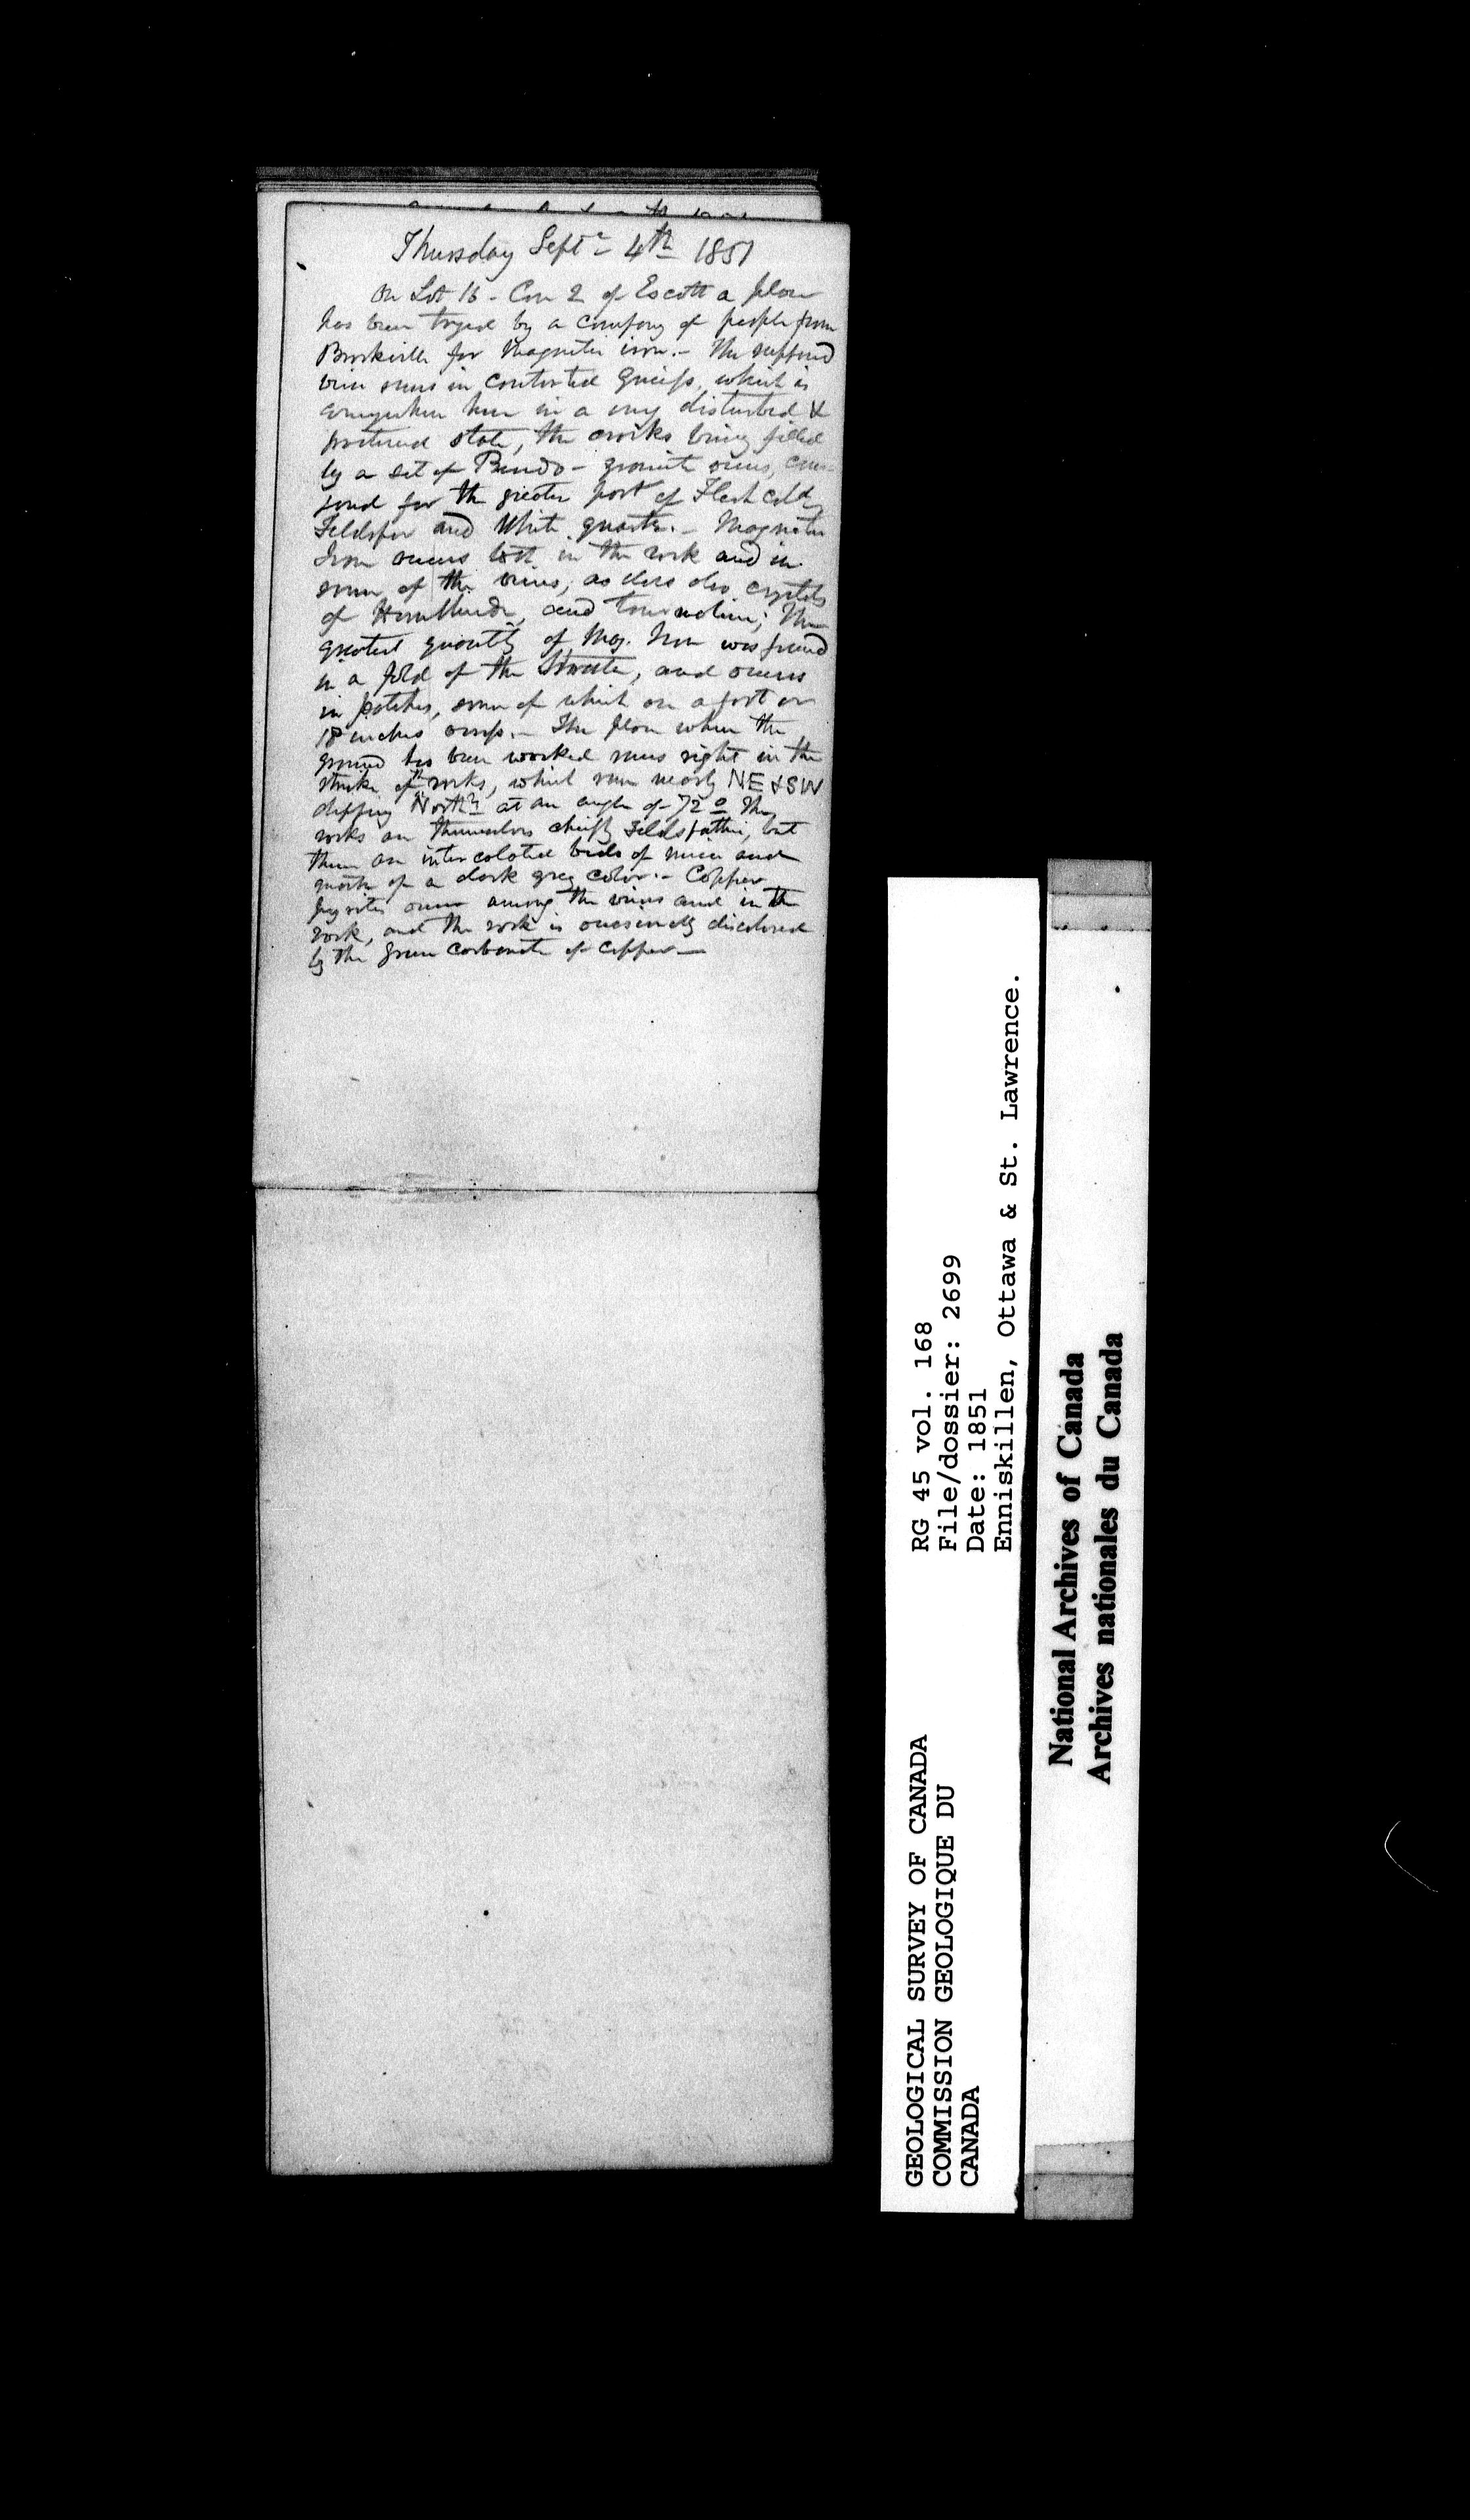 Thursday Septr 4th 1851
On Lot 16 - Con 2 of Escott a place
has been tryed by a company of people from
Brockville for Magnetic iron. - The supposed
vein runs in contorted Gneiss, which is
somewhere here in a very disturbed &
fractured state, the cracks being filled
by a set of Pseudo - granite veins, com-
posed for the greater part of Flesh cold
Feldspar and White quartz. - Magnetic
Iron occurs both in the rock and in
some of the veins, as does also crystals
of Hornblende, and tourmaline; The
greatest quantity of Mag. Iron was found
in a fold of the Strata, and occurs
in patches, some of which are a foot or
18 inches across. - The place where the
ground has been worked runs right in the
strike of the rocks, which run nearly NE & SW
dipping North at an angle of 72° The
rocks are themselves chiefly Feldspathic, but
there are intercalated beds of mica and
quartz of a dark grey color. - Copper
pyrites occur among the veins and in the
rock, and the rock is occasionally discolored
by the green carbonate of copper —
RG 45 vol. 168
File/dossier: 2699
Date: 1851
Enniskillen, Ottawa & St. Lawrence.
GEOLOGICAL SURVEY OF CANADA
COMMISSION GEOLOGIQUE DU
CANADA
National Archives of Canada
Archives nationales du Canada